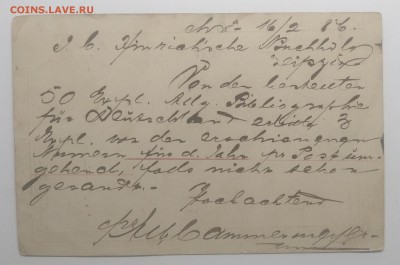 COINS.LAVE.RU
16/2 86.
J. C. Hinrichssche Buchhdlg
Leipzig
Von den bestellten
50 Expl. Allg. Bibliographie
für Deutschland 3
Expl. von den erschienenen
Nummern für d. Jahr pr Post um-
gehend, falls nicht schon
gesandt.-
Hochachtend